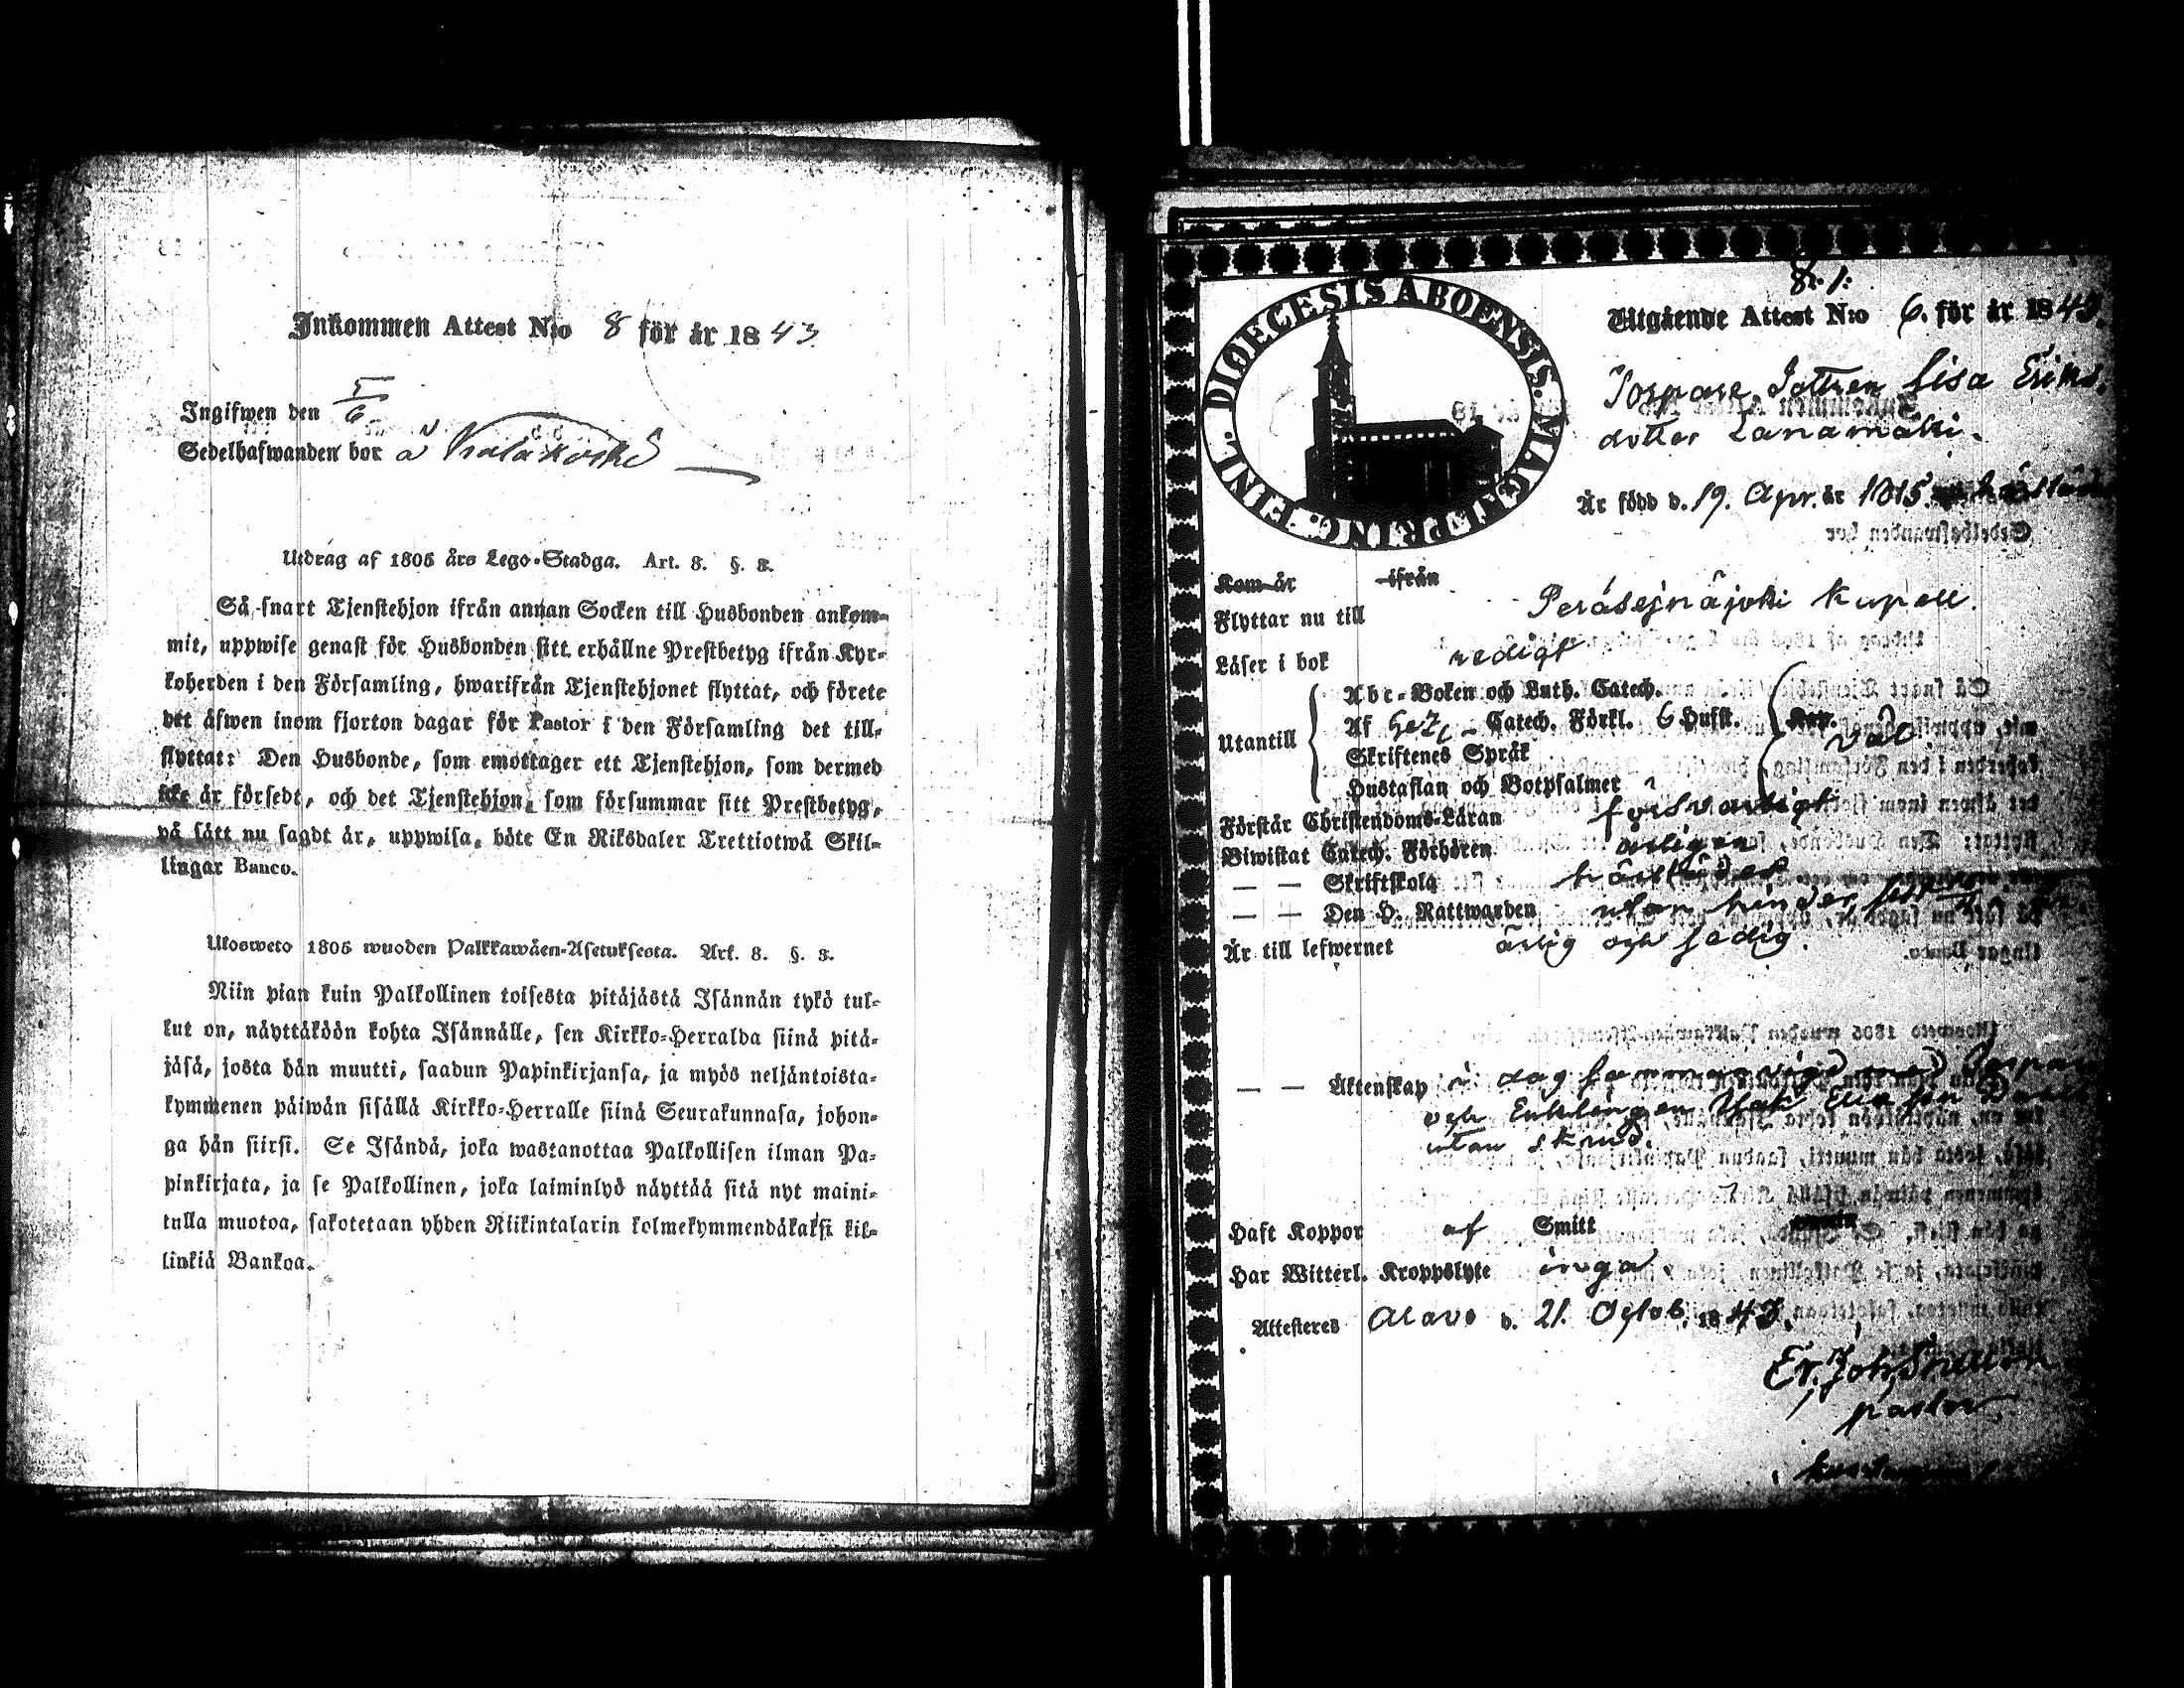 Inkommen Attest N:o 8 för år 1843
Ingifwen den 5/6
Sedelhafwanden bor å Kalakoski
Utdrag af 1805 års Lego-Stadga. Art. 8. §. 3.
Så snart Tjenstehjon ifrån annan Socken till Husbonden ankom-
mit, uppwise genast för Husbonden sitt erhållne Prestbetyg ifrån Kyr-
koherden i den Församling, hwarifrån Tjenstehjonet flyttat, och förete
det äfwen inom fjorton dagar för Pastor i den Församling det till-
flyttat: Den Husbonde, som emottager ett Tjenstehjon, som dermed
icke är försedt, och det Tjenstehjon, som försummar sitt Prestbetyg,
på sätt nu sagdt är, uppwisa, böte En Riksdaler Trettiotwå Skil-
lingar Banco.
Ulosweto 1805 wuoden Palkkawäen-Asetuksesta. Art. 8. §. 3.
Niin pian kuin Palkollinen toisesta pitäjästä Isännän tykö tul-
lut on, näyttäköön kohta Isännälle, sen Kirkko-Herralda siinä pitä-
jäsä, josta hän muutti, saadun Papinkirjansa, ja myös neljäntoista-
kymmenen päiwän sisällä Kirkko-Herralle siinä Seurakunnasa, johon-
ga hän siirsi. Se Isändä, joka wastanottaa Palkollisen ilman Pa-
pinkirjata, ja se Palkollinen, joka laiminlyö näyttää sitä nyt maini-
tulla muotoa, sakotetaan yhden Riikintalarin kolmekymmendäkaksi kil-
linkiä Bankoa.
DIOECESIS ABOENSIS. MAGN. PRINC. FENL.
Utgående Attest N:o 6. för år 1843.
Torpare Dottren Lisa Eriks
dotter Lanamäki.
Är född d. 19. Apr. år 1815.
Kom år ifrån
Flyttar nu till Peräsejnäjoki Kapell.
Läser i bok redigt
Utantill
Abc-Boken och Luth. Catech.
Af Catech. Förkl. 6 Hufst. Kap.
Skriftenes Språk
väl
Hustaflan och Botpsalmer
Förstår Christendoms-Läran försvarligt
Biwistat Catech. Förhören årligen
— — Skriftskola härstädes
— — Den H. Nattwarden utan hinder
Är till lefwernet ärlig och sedig.
— — Äktenskap i dag sammanvigd med
och Enklingen Isak Eliasson
utan skrud.
Haft Koppor af Smitt
Har Witterl. Kroppslyte inga.
Attesteras Alavo d. 21. Octob. 1843.
pastor.